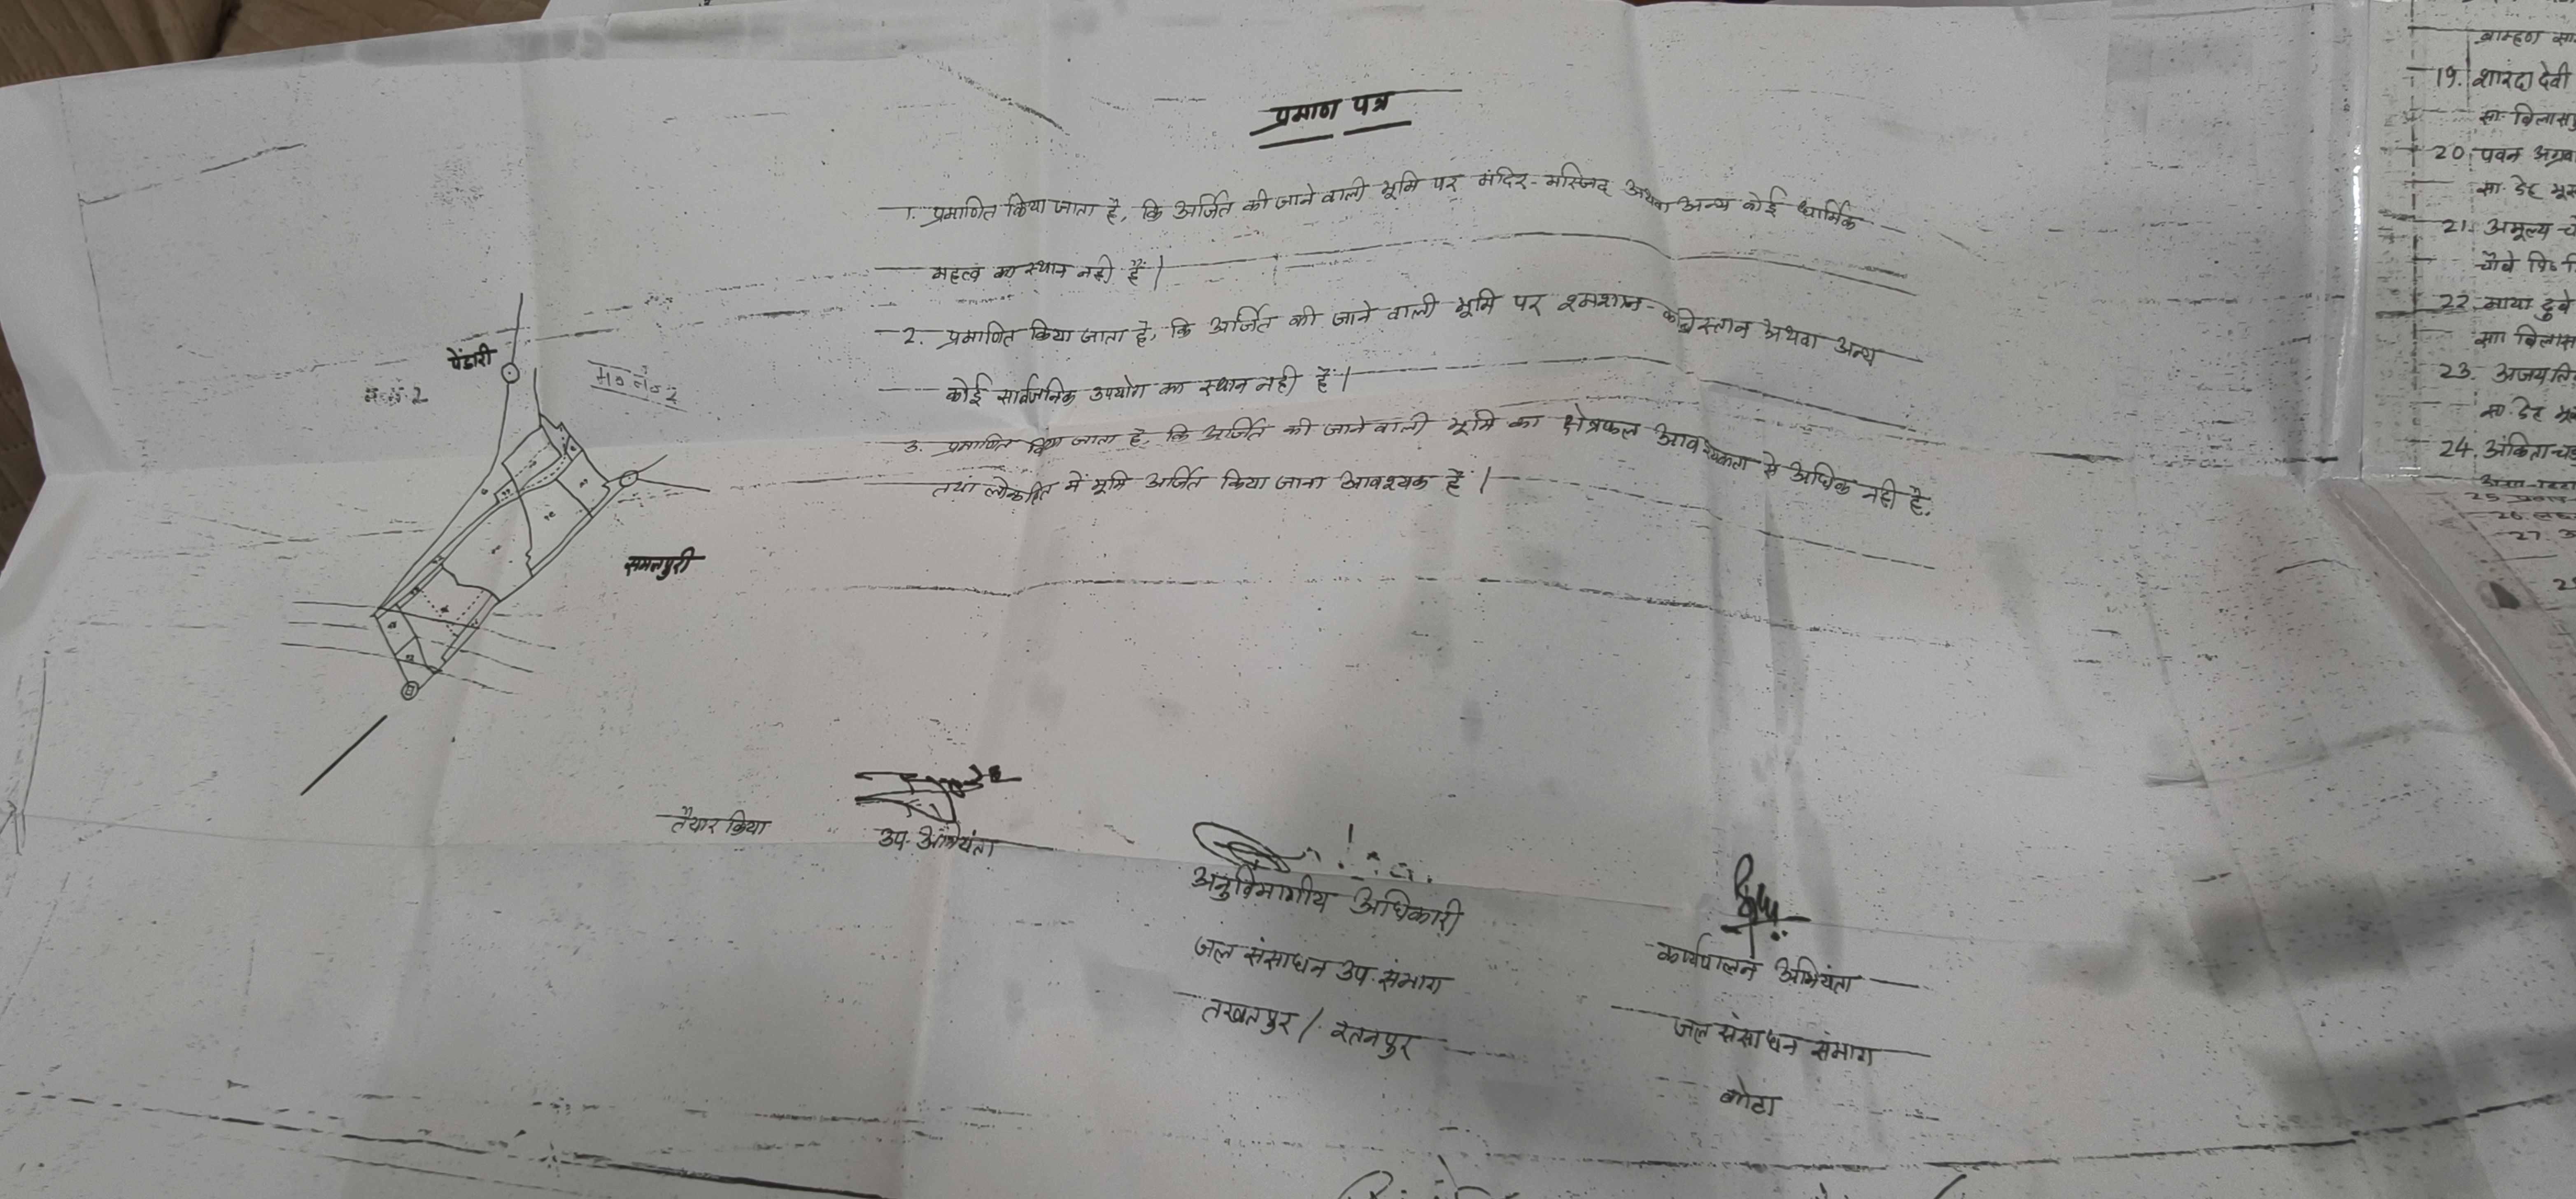 प्रमाण पत्र
1. प्रमाणित किया जाता है, कि अर्जित की जाने वाली भूमि पर मंदिर-मस्जिद अथवा अन्य कोई धार्मिक
महत्व का स्थान नही है।
2. प्रमाणित किया जाता है, कि अर्जित की जाने वाली भूमि पर श्मशान-कब्रिस्तान अथवा अन्य
कोई सार्वजनिक उपयोग का स्थान नही है।
3. प्रमाणित किया जाता है, कि अर्जित की जाने वाली भूमि का क्षेत्रफल आवश्यकता से अधिक नही है,
तथा लोकहित में भूमि अर्जित किया जाना आवश्यक है।
पेंडारी
म० नं० 2
समलपुरी
तैयार किया
उप-अभियंता
अनुविभागीय अधिकारी
जल संसाधन उप-संभाग
तखतपुर / रतनपुर
कार्यपालन अभियंता
जल संसाधन संभाग
कोटा
19. शारदा देवी
20. पवन
21. अमूल्य
चौबे
22. माया दुबे
23.
24. अंकिता